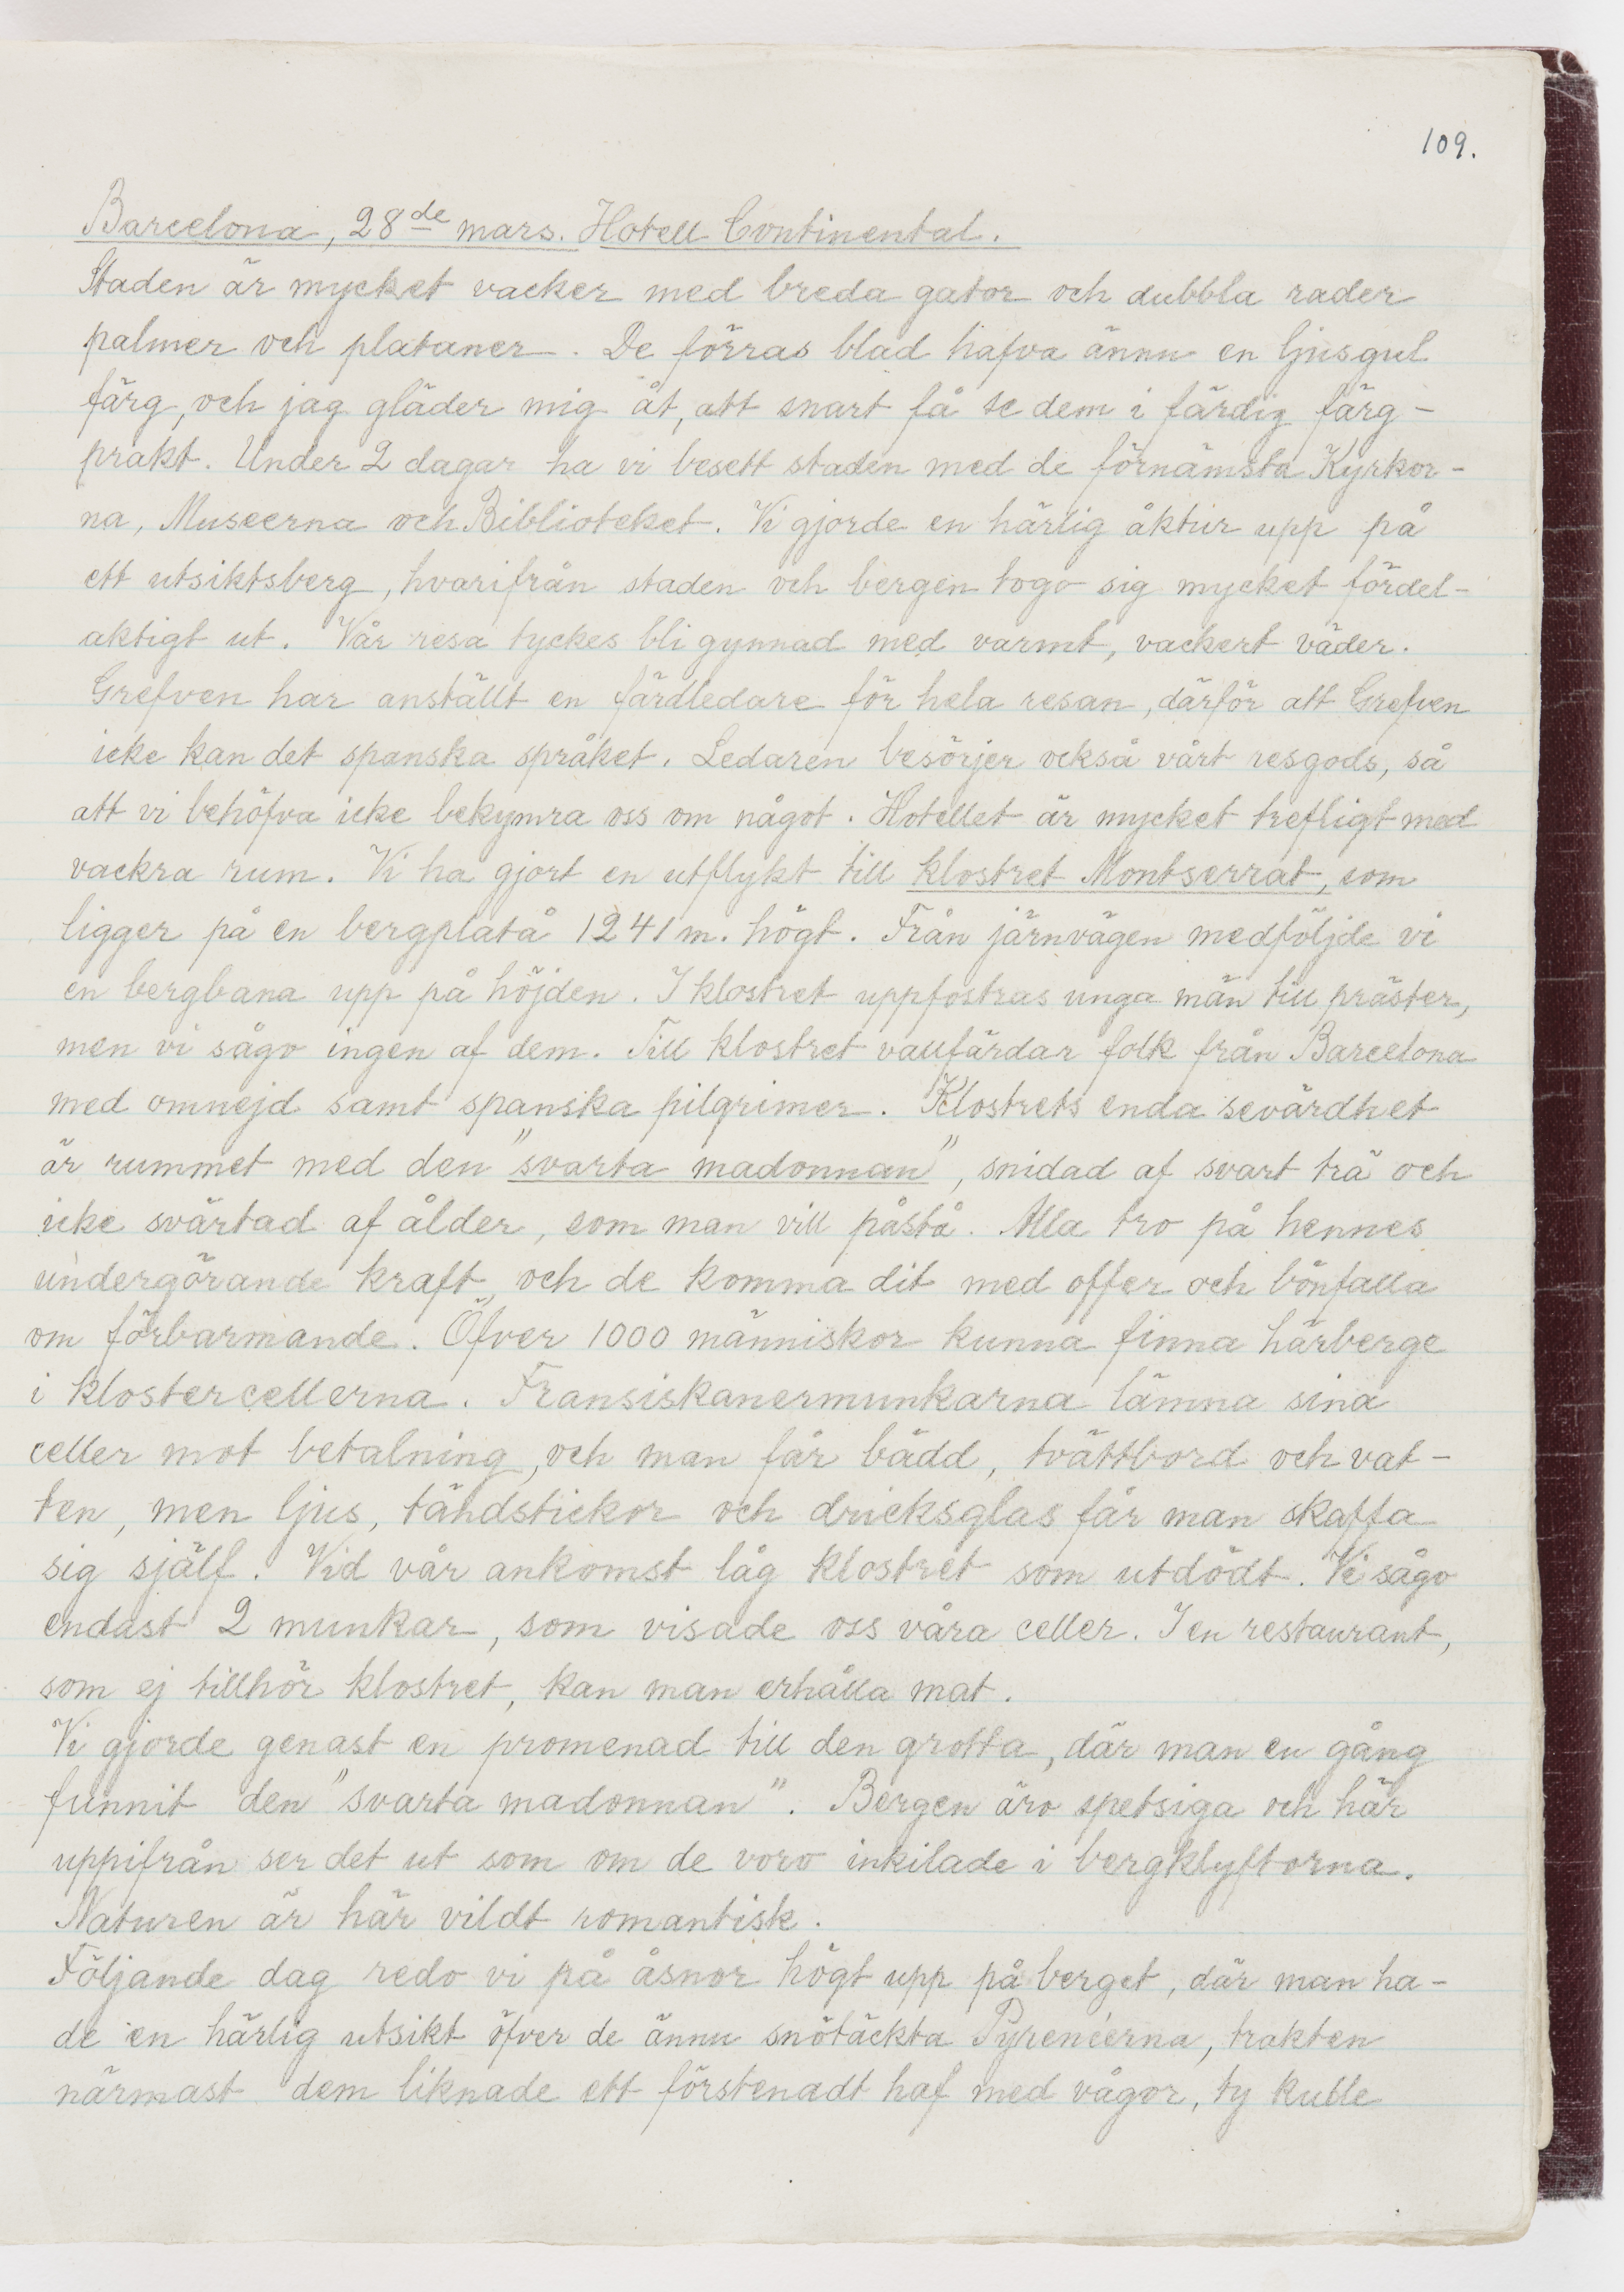 109.
Barcelona, 28de mars. Hotell Continental.
Staden är mycket vacker med breda gator och dubbla rader
palmer och plataner. De förras blad hafva ännu en ljusgul
färg, och jag gläder mig åt, att snart få se dem i färdig färg-
prakt. Under 2 dagar ha vi besett staden med de förnämsta Kyrkor-
na, Museerna och Biblioteket. Vi gjorde en härlig åktur upp på
ett utsiktsberg, hvarifrån staden och bergen togo sig mycket fördel-
aktigt ut. Vår resa tyckes bli gynnad med varmt, vackert väder.
Grefven har anställt en färdledare för hela resan, därför att Grefven
icke kan det spanska språket. Ledaren besörjer också vårt resgods, så
att vi behöfva icke bekymra oss om något. Hotellet är mycket trefligt med
vackra rum. Vi ha gjort en utflykt till klostret Montserrat, som
ligger på en bergplatå 1241 m. högt. Från järnvägen medföljde vi
en bergbana upp på höjden. I klostret uppfostras unga män till präster,
men vi sågo ingen af dem. Till klostret vallfärdar folk från Barcelona
med omnejd samt spanska pilgrimer. Klostrets enda sevärdhet
är rummet med den "svarta madonnan", snidad af svart trä och
icke svärtad af ålder, som man vill påstå. Alla tro på hennes
undergörande kraft, och de komma dit med offer och bönfalla
om förbarmande. Öfver 1000 människor kunna finna härberge
i klostercellerna. Fransiskanermunkarna lämna sina
celler mot betalning, och man får bädd, tvättbord och vat-
ten, men ljus, tändstickor och dricksglas får man skaffa
sig själf. Vid vår ankomst låg klostret som utdödt. Vi sågo
endast 2 munkar, som visade oss våra celler. I en restaurant,
som ej tillhör klostret, kan man erhålla mat.
Vi gjorde genast en promenad till den grotta, där man en gång
funnit den "svarta madonnan". Bergen äro spetsiga och här
uppifrån ser det ut som om de voro inkilade i bergklyftorna.
Naturen är här vildt romantisk.
Följande dag redo vi på åsnor högt upp på berget, där man ha-
de en härlig utsikt öfver de ännu snötäckta Pyrenéerna, trakten
närmast dem liknade ett förstenadt haf med vågor, ty kulle